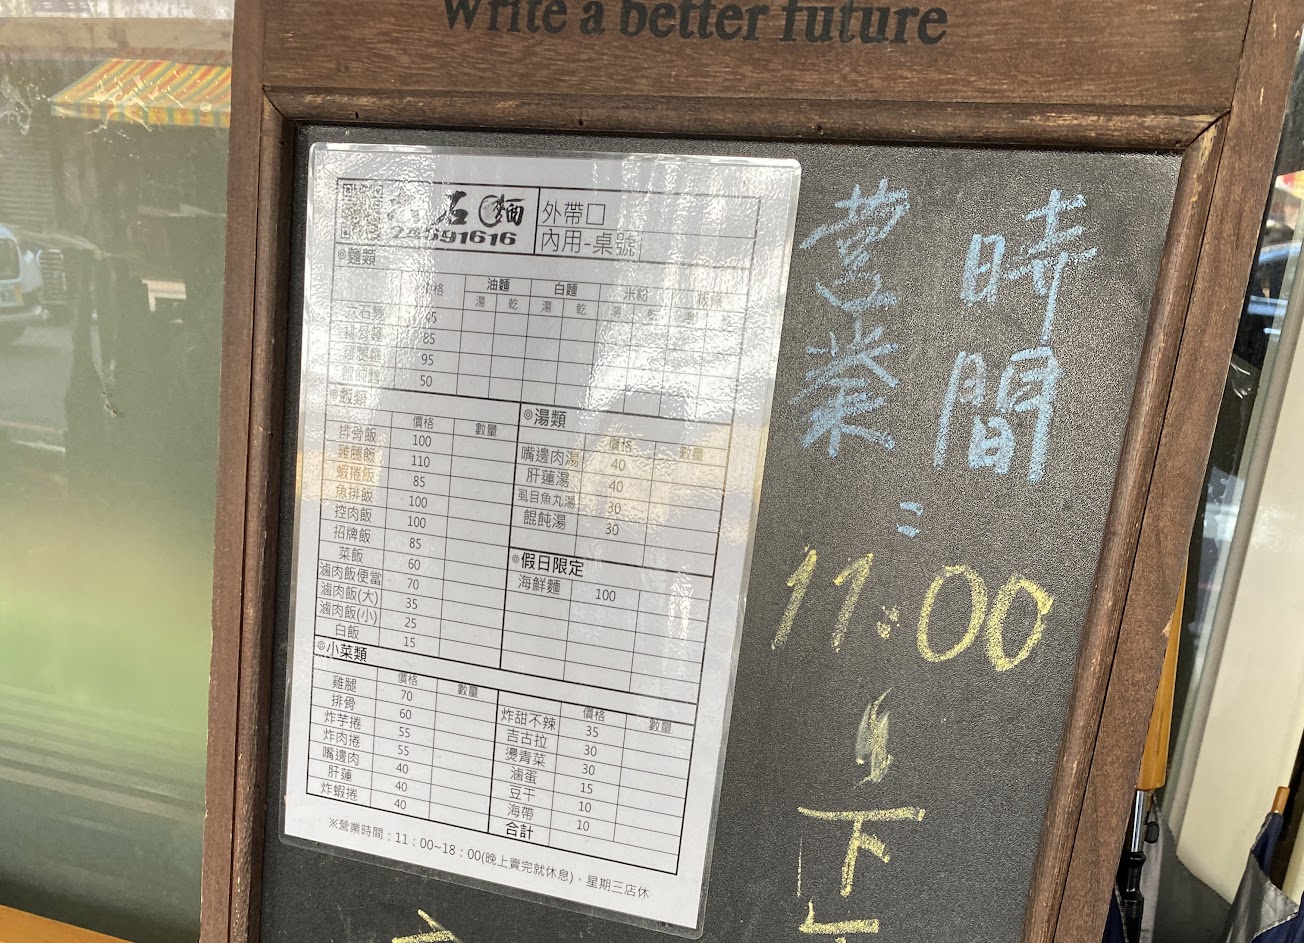 Write a better future
石 麵
外帶□
24691616
內用-桌號
◎麵類
價格 油麵 白麵 米粉
湯 乾 湯 乾 湯 乾 湯 乾
六石麵 45
排骨麵 85
雞腿麵 95
餛飩麵 50
◎飯類
價格 數量
排骨飯 100
雞腿飯 110
蝦捲飯 85
魚排飯 100
控肉飯 100
招牌飯 85
菜飯 60
滷肉飯便當 70
滷肉飯(大) 35
滷肉飯(小) 25
白飯 15
◎湯類
價格 數量
嘴邊肉湯 40
肝蓮湯 40
虱目魚丸湯 30
餛飩湯 30
◎假日限定
海鮮麵 100
◎小菜類
價格 數量
雞腿 70
排骨 60
炸芋捲 55
炸肉捲 55
嘴邊肉 40
肝蓮 40
炸蝦捲 40
價格 數量
炸甜不辣 35
吉古拉 30
燙青菜 30
滷蛋 15
豆干 10
海帶 10
合計
※營業時間：11：00~18：00(晚上賣完就休息)，星期三店休
營業
時間
：
11:00
下